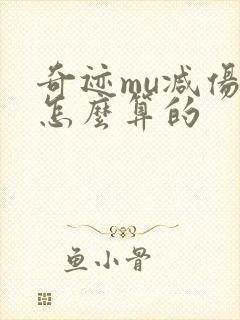 奇迹mu减傷
怎麼算的
鱼小骨